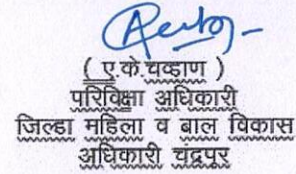 ( ए.के.चव्हाण )
परिविक्षा अधिकारी
जिल्हा महिला व बाल विकास
अधिकारी चंद्रपूर